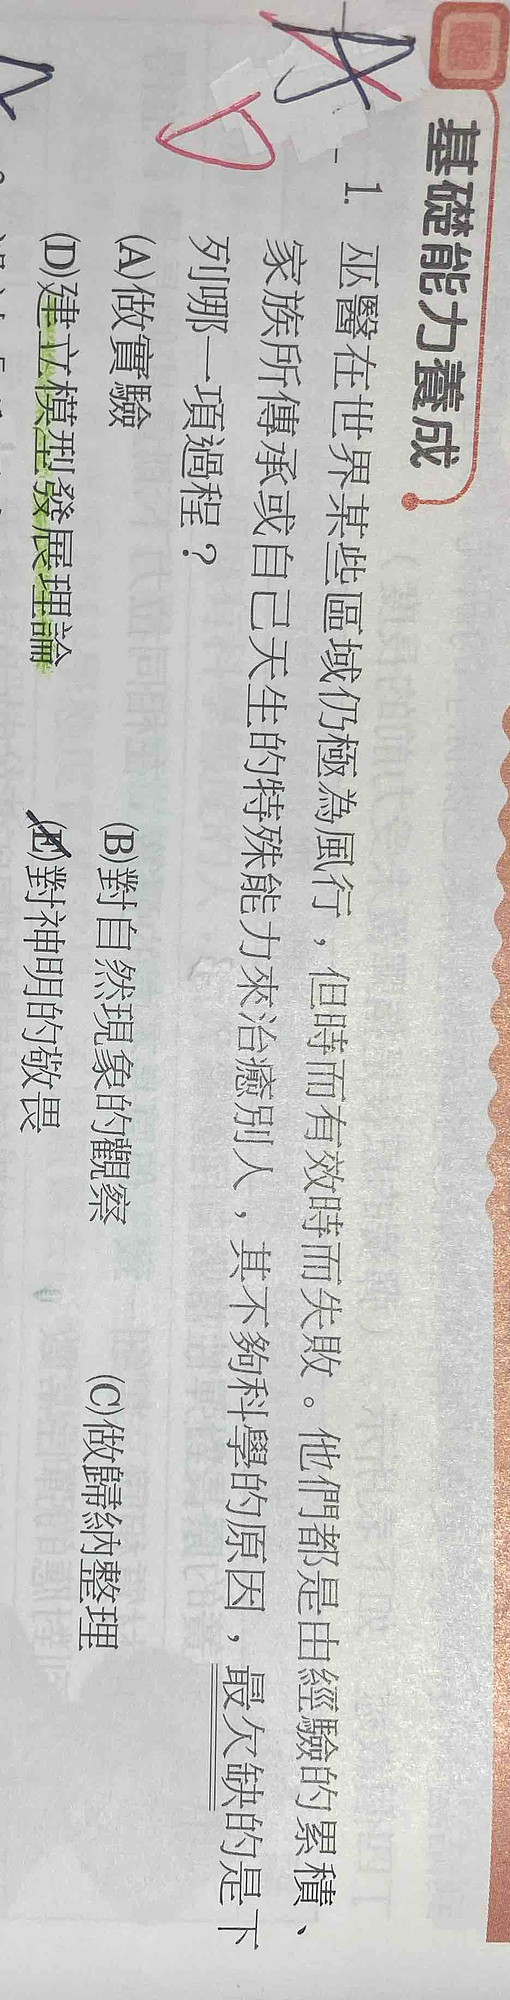 基礎能力養成
A
D
1. 巫醫在世界某些區域仍極為風行，但時而有效時而失敗。他們都是由經驗的累積、
家族所傳承或自己天生的特殊能力來治癒別人，其不夠科學的原因，最欠缺的是下
列哪一項過程？
(A)做實驗 (B)對自然現象的觀察 (C)做歸納整理
(D)建立模型發展理論 (E)對神明的敬畏